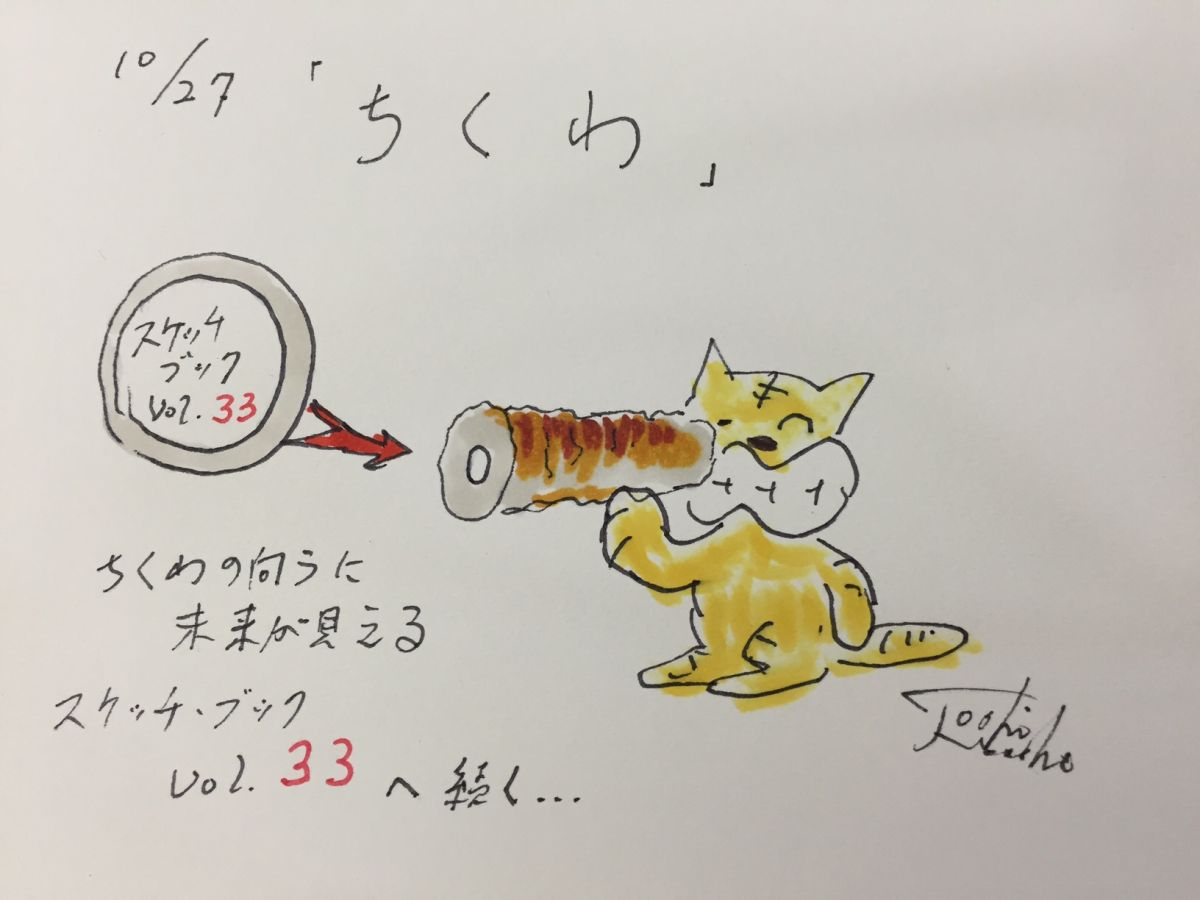 10/27 「ちくわ」
スケッチ
ブック
vol. 33
ちくわの向うに
未来が見える
スケッチ・ブック
vol. 33 へ続く...